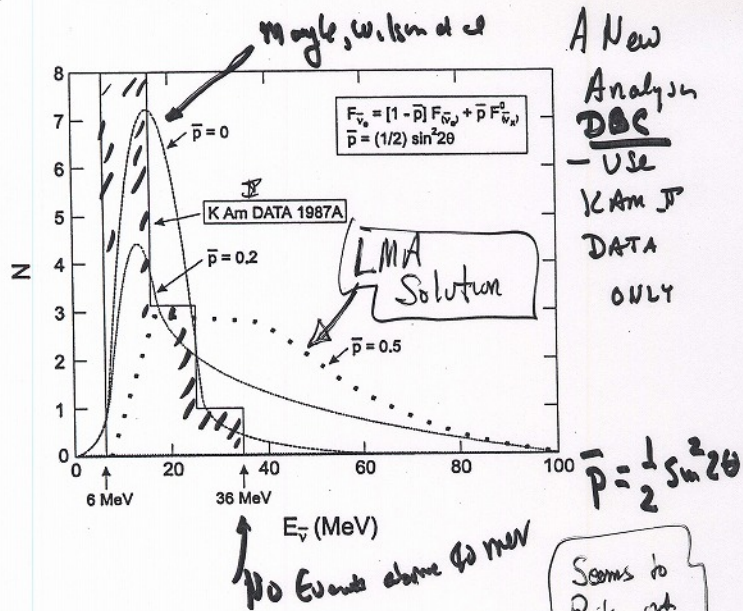 Mayle, Wilson et al
A New
Analysis
DBC
- USE
KAM II
DATA
ONLY
8
7
6
5
4
3
2
1
0
N
F_ν̄e = [1 - p̄] F_(ν̄e) + p̄ F⁰_(ν̄x)
p̄ = (1/2) sin²2θ
p̄ = 0
II
K Am DATA 1987A
p̄ = 0.2
LMA
Solution
p̄ = 0.5
0 20 40 60 80 100
6 MeV 36 MeV
E_ν̄ (MeV)
No Events above 40 MeV
p̄ = 1/2 sin²2θ
Seems to